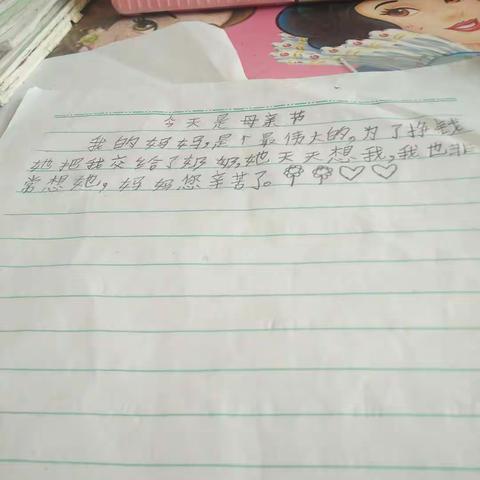 今天是母亲节
我的妈妈,是个最伟大的。为了挣钱
她把我交给了奶奶,她天天想我,我也非
常想她,妈妈您辛苦了。